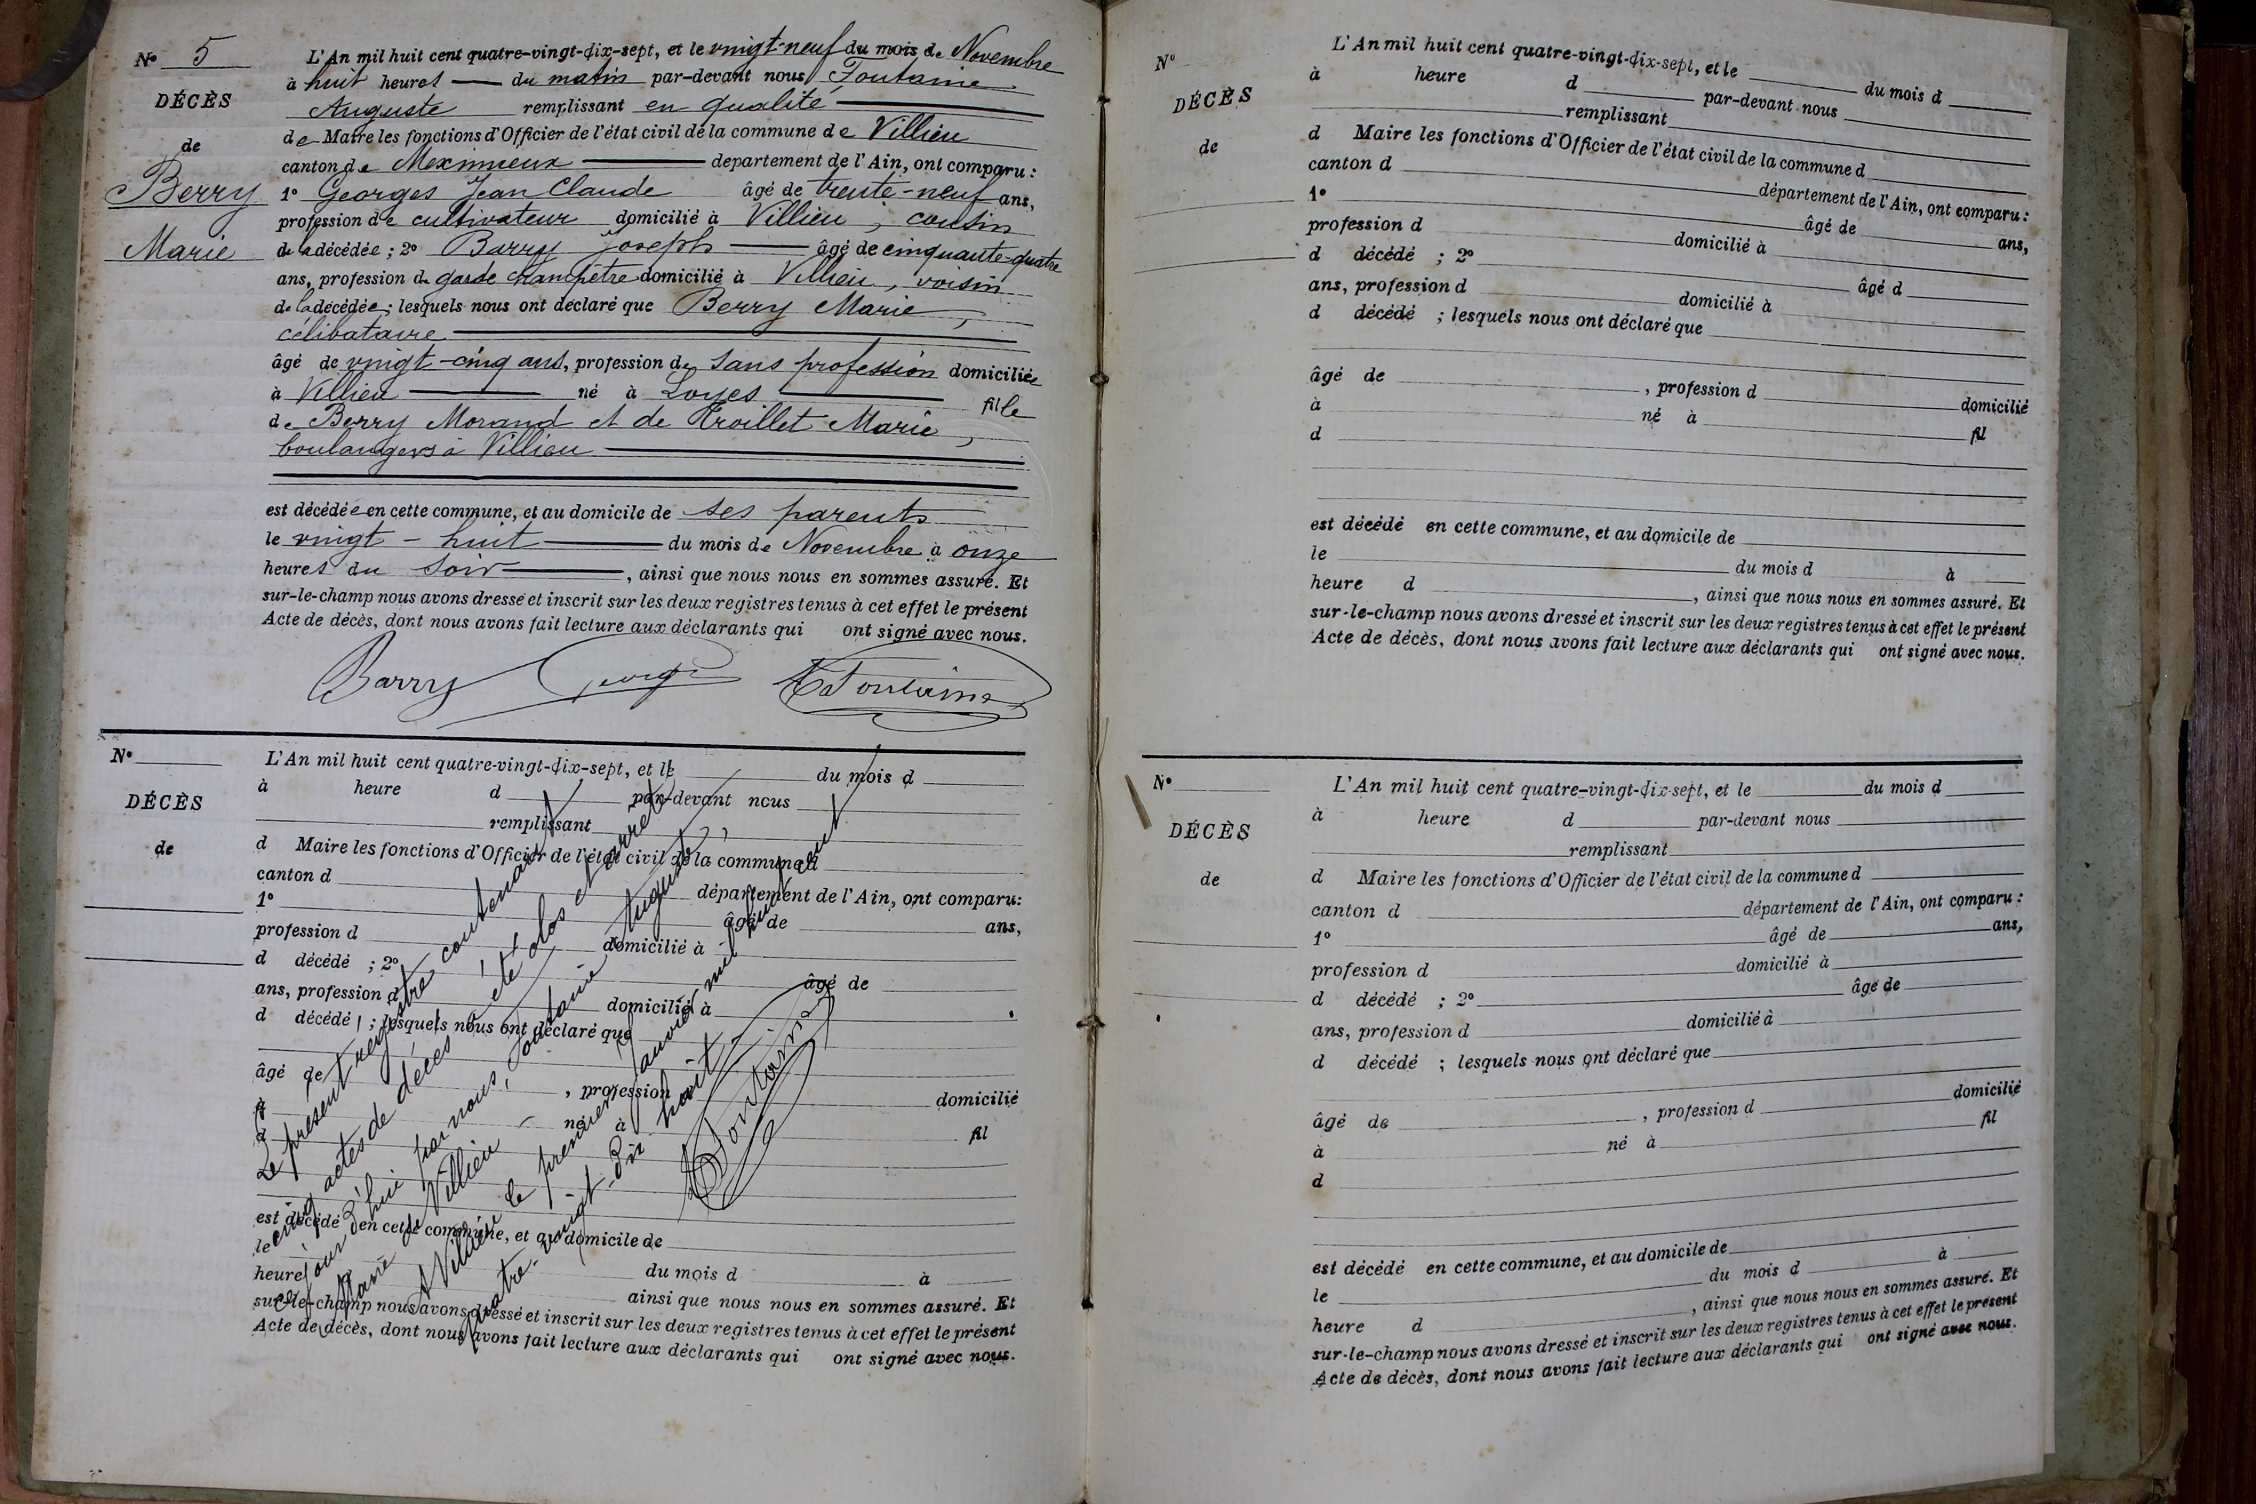 N° 5
DÉCÈS
de
Berry
Marie
L'An mil huit cent quatre-vingt-dix-sept, et le vingt-neuf du mois de Novembre
à huit heures du matin par-devant nous Fontaine
Auguste remplissant en qualité
de Maire les fonctions d'Officier de l'état civil de la commune de Villieu
canton de Meximieux département de l'Ain, ont comparu :
1° Georges Jean Claude âgé de trente-neuf ans,
profession de cultivateur domicilié à Villieu, cousin
de la décédée ; 2° Barry Joseph âgé de cinquante-quatre
ans, profession de garde champêtre domicilié à Villieu, voisin
de la décédée ; lesquels nous ont déclaré que Berry Marie,
célibataire
âgé de vingt-cinq ans, profession de sans profession domiciliée
à Villieu né à Loyes fille
de Berry Morand et de Troillet Marie,
boulangers à Villieu
est décédée en cette commune, et au domicile de ses parents
le vingt-huit du mois de Novembre à onze
heures du soir, ainsi que nous nous en sommes assuré. Et
sur-le-champ nous avons dressé et inscrit sur les deux registres tenus à cet effet le présent
Acte de décès, dont nous avons fait lecture aux déclarants qui ont signé avec nous.
Barry Georges A Fontaine
N°
DÉCÈS
de
L'An mil huit cent quatre-vingt-dix-sept, et le du mois d
à heure d par-devant nous
remplissant
d Maire les fonctions d'Officier de l'état civil de la commune d
canton d département de l'Ain, ont comparu :
1° âgé de ans,
profession d domicilié à
d décédé ; 2° âgé de
ans, profession d domicilié à
d décédé ; lesquels nous ont déclaré que
âgé de , profession domicilié
à né à fil
d
est décédé en cette commune, et au domicile de
le du mois d à
heure ainsi que nous nous en sommes assuré. Et
sur-le-champ nous avons dressé et inscrit sur les deux registres tenus à cet effet le présent
Acte de décès, dont nous avons fait lecture aux déclarants qui ont signé avec nous.
Le présent registre contenant
cinq actes de décès a été clos et arrêté
ce jour d'hui par nous, Fontaine Auguste,
Maire de Villieu
A Villieu le premier Janvier mil huit cent
quatre-vingt-dix-huit
A Fontaine
N°
DÉCÈS
de
L'An mil huit cent quatre-vingt-dix-sept, et le du mois d
à heure d par-devant nous
remplissant
d Maire les fonctions d'Officier de l'état civil de la commune d
canton d département de l'Ain, ont comparu :
1° âgé de ans,
profession d domicilié à
d décédé ; 2° âgé d
ans, profession d domicilié à
d décédé ; lesquels nous ont déclaré que
âgé de , profession d domicilié
à né à fil
d
est décédé en cette commune, et au domicile de
le du mois d à
heure d , ainsi que nous nous en sommes assuré. Et
sur-le-champ nous avons dressé et inscrit sur les deux registres tenus à cet effet le présent
Acte de décès, dont nous avons fait lecture aux déclarants qui ont signé avec nous.
N°
DÉCÈS
de
L'An mil huit cent quatre-vingt-dix-sept, et le du mois d
à heure d par-devant nous
remplissant
d Maire les fonctions d'Officier de l'état civil de la commune d
canton d département de l'Ain, ont comparu :
1° âgé de ans,
profession d domicilié à
d décédé ; 2° âgé de
ans, profession d domicilié à
d décédé ; lesquels nous ont déclaré que
âgé de , profession d domicilié
à né à fil
d
est décédé en cette commune, et au domicile de
le du mois d à
heure d , ainsi que nous nous en sommes assuré. Et
sur-le-champ nous avons dressé et inscrit sur les deux registres tenus à cet effet le présent
Acte de décès, dont nous avons fait lecture aux déclarants qui ont signé avec nous.